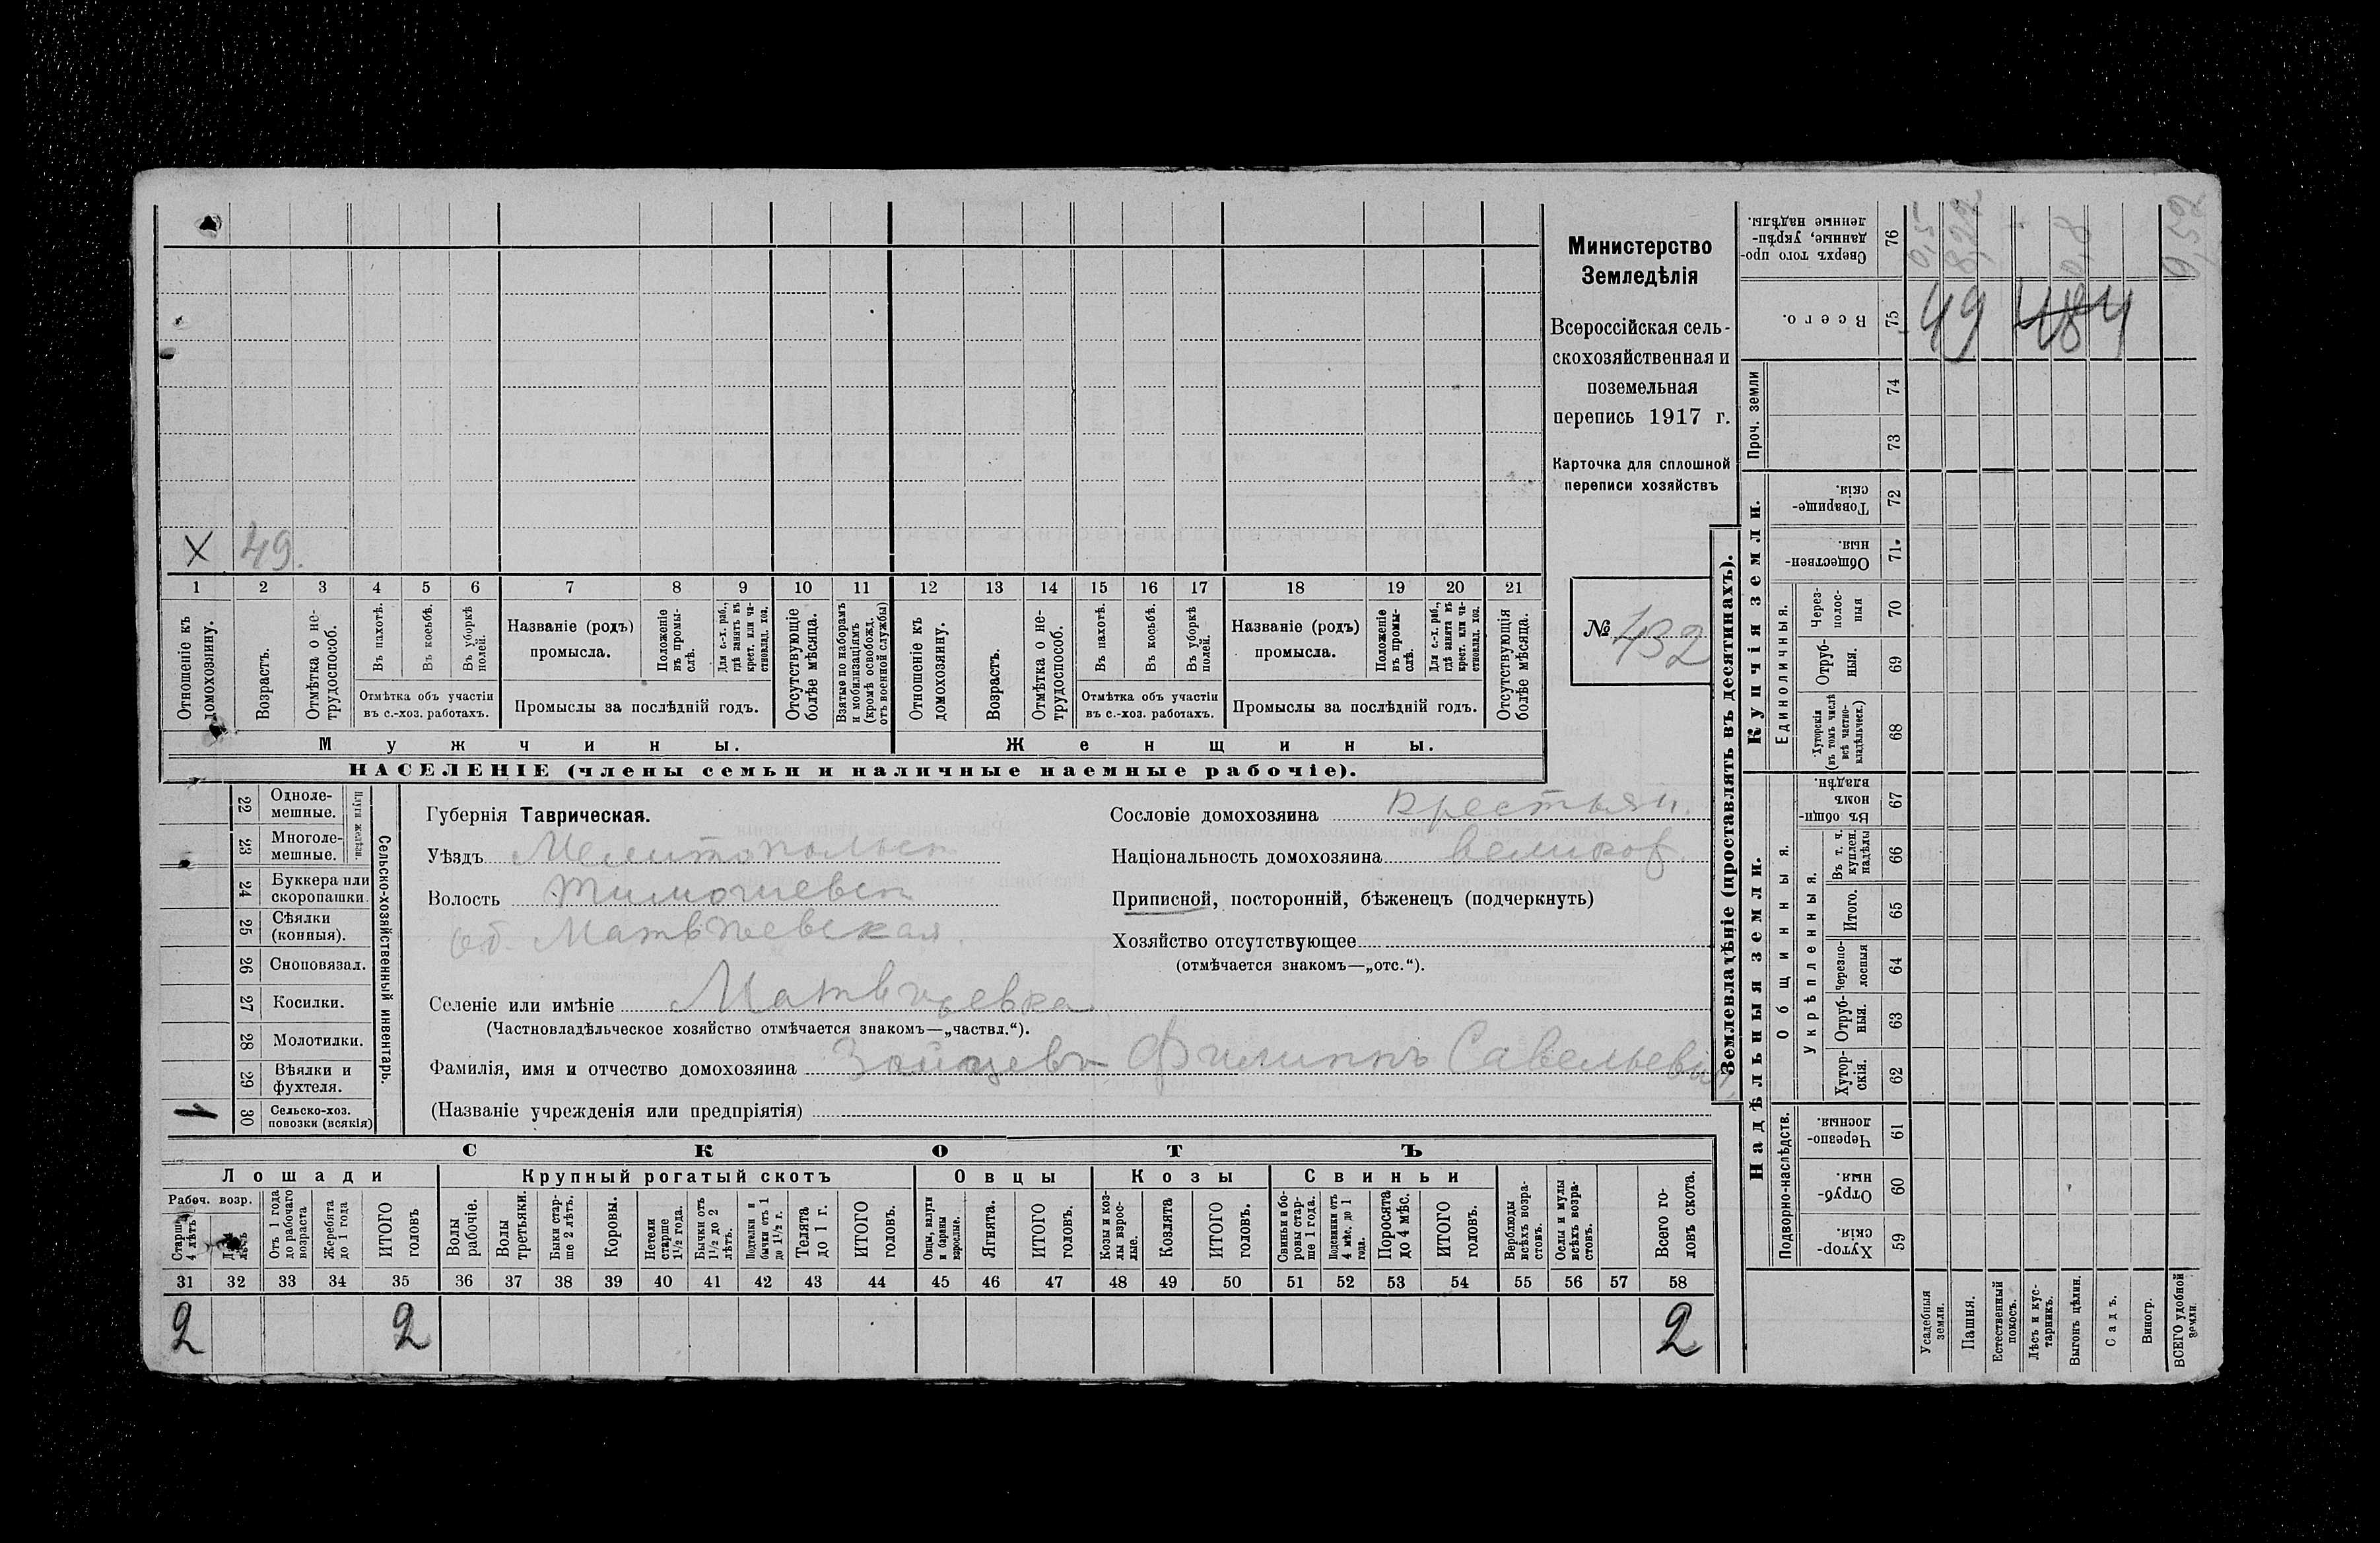 X 49.
1 2 3 4 5 6 7 8 9 10 11 12 13 14 15 16 17 18 19 20 21
Отношеніе къ домохозяину.
Возрастъ.
Отмѣтка о нетрудоспособ.
Въ пахотѣ.
Въ косьбѣ.
Въ уборкѣ полей.
Отмѣтка объ участіи
въ с.-хоз. работахъ.
Названіе (родъ)
промысла.
Положеніе въ промыслѣ.
Для с.-х. раб., гдѣ занятъ въ крест. или частновлад. хоз.
Промыслы за послѣдній годъ.
Отсутствующіе болѣе мѣсяца.
Взятые по наборамъ и мобилизаціямъ (кромѣ освобожд. отъ военной службы)
Отношеніе къ домохозяину.
Возрастъ.
Отмѣтка о нетрудоспособ.
Въ пахотѣ.
Въ косьбѣ.
Въ уборкѣ полей.
Отмѣтка объ участіи
въ с.-хоз. работахъ.
Названіе (родъ)
промысла.
Положеніе въ промыслѣ.
Для с.-х. раб., гдѣ занята въ крест. или частновлад. хоз.
Промыслы за послѣдній годъ.
Отсутствующія болѣе мѣсяца.
Мужчины.
Женщины.
НАСЕЛЕНІЕ (члены семьи и наличные наемные рабочіе).
Министерство
Земледѣлія
Всероссійская сель-
скохозяйственная и
поземельная
перепись 1917 г.
Карточка для сплошной
переписи хозяйствъ
№ 432
22 Одноле-
мешные.
23 Многоле-
мешные.
Плуги желѣзн.
24 Буккера или
скоропашки.
25 Сѣялки
(конныя).
26 Сноповязал.
27 Косилки.
28 Молотилки.
29 Вѣялки и
фухтеля.
1 30 Сельско-хоз.
повозки (всякія)
Сельско-хозяйственный инвентарь.
Губернія Таврическая.
Уѣздъ Мелитопольск
Волость Тимошевск
об. Матвѣевская.
Селеніе или имѣніе Матвѣевка
(Частновладѣльческое хозяйство отмѣчается знакомъ—„частвл.“).
Фамилія, имя и отчество домохозяина Зайцевъ Филиппъ Савельевич
(Названіе учрежденія или предпріятія)
Сословіе домохозяина крестьян.
Національность домохозяина великор.
Приписной, посторонній, бѣженецъ (подчеркнуть)
Хозяйство отсутствующее
(отмѣчается знакомъ—„отс.“).
СКОТЪ
Лошади
Крупный рогатый скотъ
Овцы
Козы
Свиньи
Рабоч. возр.
Старше 4 лѣтъ
До лѣтъ
Отъ 1 года до рабочаго возраста
Жеребята до 1 года
ИТОГО головъ
Волы рабочіе.
Волы третьяки.
Быки старше 2 лѣтъ.
Коровы.
Нетели старше 1½ года.
Бычки отъ 1½ до 2 лѣтъ.
Подтелки и бычки отъ 1 до 1½ г.
Телята до 1 г.
ИТОГО головъ.
Овцы, валухи и бараны взрослые.
Ягнята.
ИТОГО головъ.
Козы и козлы взрослые.
Козлята
ИТОГО головъ.
Свиньи и боровы старше 1 года.
Подсвинки отъ 4 мѣс. до 1 года.
Поросята до 4 мѣс.
ИТОГО головъ.
Верблюды всѣхъ возрастовъ.
Ослы и мулы всѣхъ возрастовъ.
Всего головъ скота.
31 32 33 34 35 36 37 38 39 40 41 42 43 44 45 46 47 48 49 50 51 52 53 54 55 56 57 58
2 2 2
Землевладѣніе (проставлять въ десятинахъ).
Надѣльныя земли.
Купчія земли.
Проч. земли
Подворно-наслѣдств.
Общинныя.
Укрѣпленныя.
Единоличныя.
Сверхъ того проданные, укрѣпленные надѣлы. 76
Всего. 75
74
73
Товарищескія. 72
Общественныя. 71
Черезполосныя 70
Отрубныя. 69
Хуторскія (въ томъ числѣ всѣ частновладѣльческ.) 68
Въ общинномъ владѣн. 67
Въ т. ч. куплен. надѣлы 66
Итого. 65
Черезполосныя 64
Отрубныя. 63
Хуторскія. 62
Черезполосныя. 61
Отрубныя. 60
Хуторскія. 59
Усадебныя земли.
Пашня.
Естественный покосъ.
Лѣсъ и кустарникъ.
Выгонъ цѣлин.
Садъ.
Виногр.
ВСЕГО удобной земли.
0,5
8,22
0,8
9,52
49 484